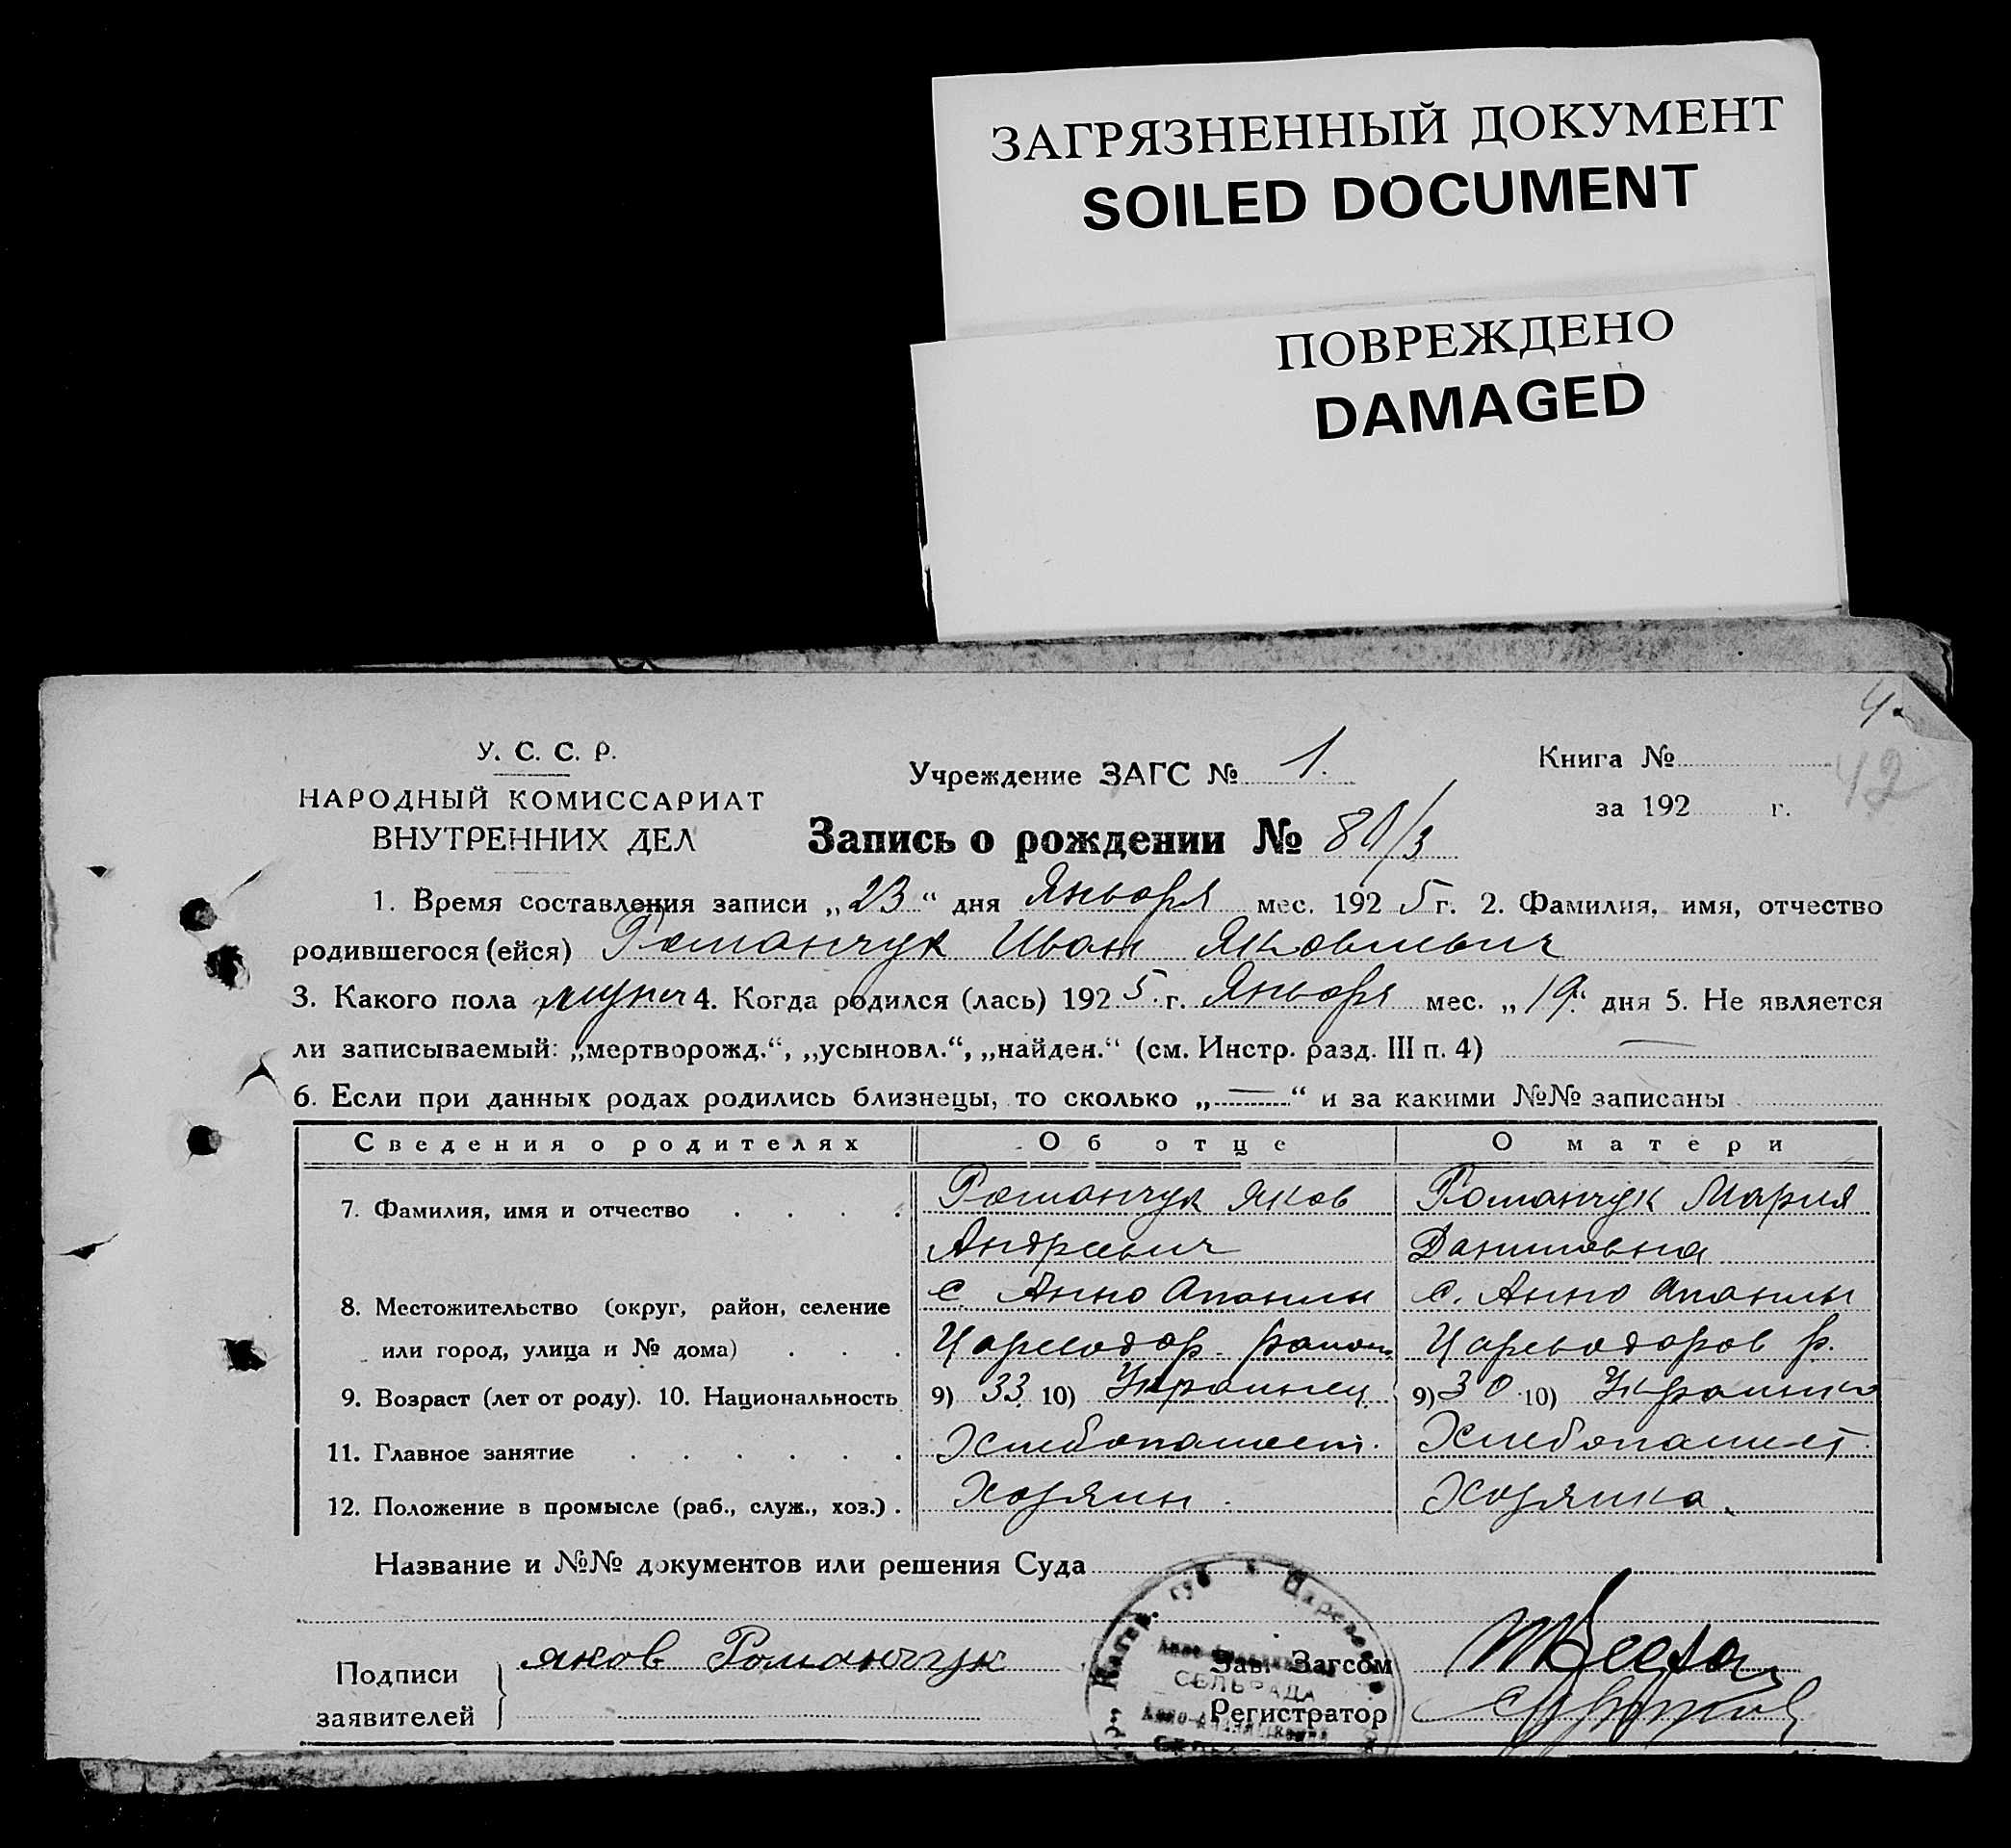 ЗАГРЯЗНЕННЫЙ ДОКУМЕНТ
SOILED DOCUMENT
ПОВРЕЖДЕНО
DAMAGED
42
У. С. С. Р.
НАРОДНЫЙ КОМИССАРИАТ
ВНУТРЕННИХ ДЕЛ
Учреждение ЗАГС № 1.
Книга №
за 192 г.
Запись о рождении № 80/3
1. Время составления записи „23“ дня Января мес. 1925 г. 2. Фамилия, имя, отчество
родившегося (ейся) Романчук Иван Яковлевич
3. Какого пола мужск 4. Когда родился (лась) 1925 г. Января мес. „19“ дня 5. Не является
ли записываемый: „мертворожд.“, „усыновл.“, „найден.“ (см. Инстр. разд. III п. 4) —
6. Если при данных родах родились близнецы, то сколько „—“ и за какими №№ записаны
Сведения о родителях Об отце О матери
7. Фамилия, имя и отчество . . . . Романчук Яков Романчук Мария
Андреевич Даниловна
8. Местожительство (округ, район, селение с. Анно Апанлы с. Анно Апанлы
или город, улица и № дома) . . . Цареводар. район Царьводоров р.
9. Возраст (лет от роду). 10. Национальность 9) 33 10) Украинец 9) 30 10) Украинка
11. Главное занятие . . . . . . Хлебопашест. Хлебопашест.
12. Положение в промысле (раб., служ., хоз.) . Хозяин. Хозяика.
Название и №№ документов или решения Суда
Подписи
заявителей
Яков Романчук
Зав. Загсом
Регистратор
СЕЛЬРАДА